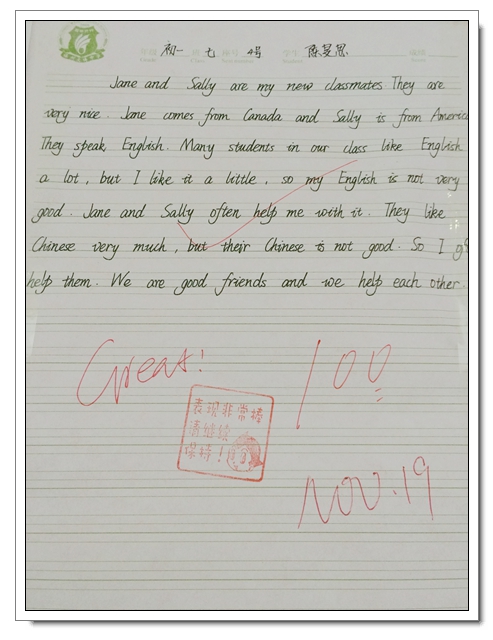 初一 七 4号 陈昱恩
Jane and Sally are my new classmates They are
very nice. Jane comes from Canada and Sally is from America
They speak English. Many students in our class like English
a lot, but I like it a little, so my English is not very
good. Jane and Sally often help me with it. They like
Chinese very much, but their Chinese is not good. So I
help them. We are good friends and we help each other.
Great! 100
表现非常棒
请继续
保持!
Nov. 19